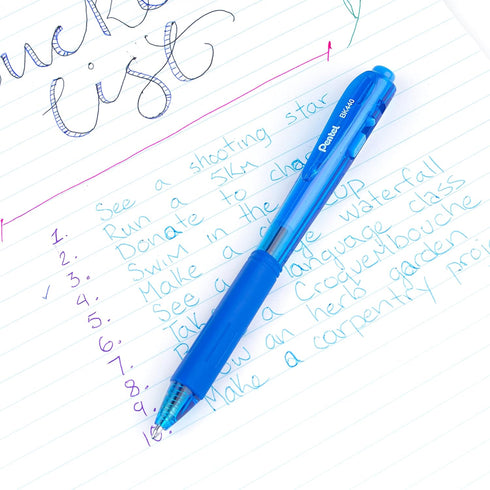 ucke
List
Pentel BK440
1. See a shooting star
2. Run a 5KM
3. Donate to cha
4. Swim in the
5. Make a CUP
6. See a waterfall
7. language class
8. a Croquembouche
9. ow an herb garden
10. Make a carpentry proj